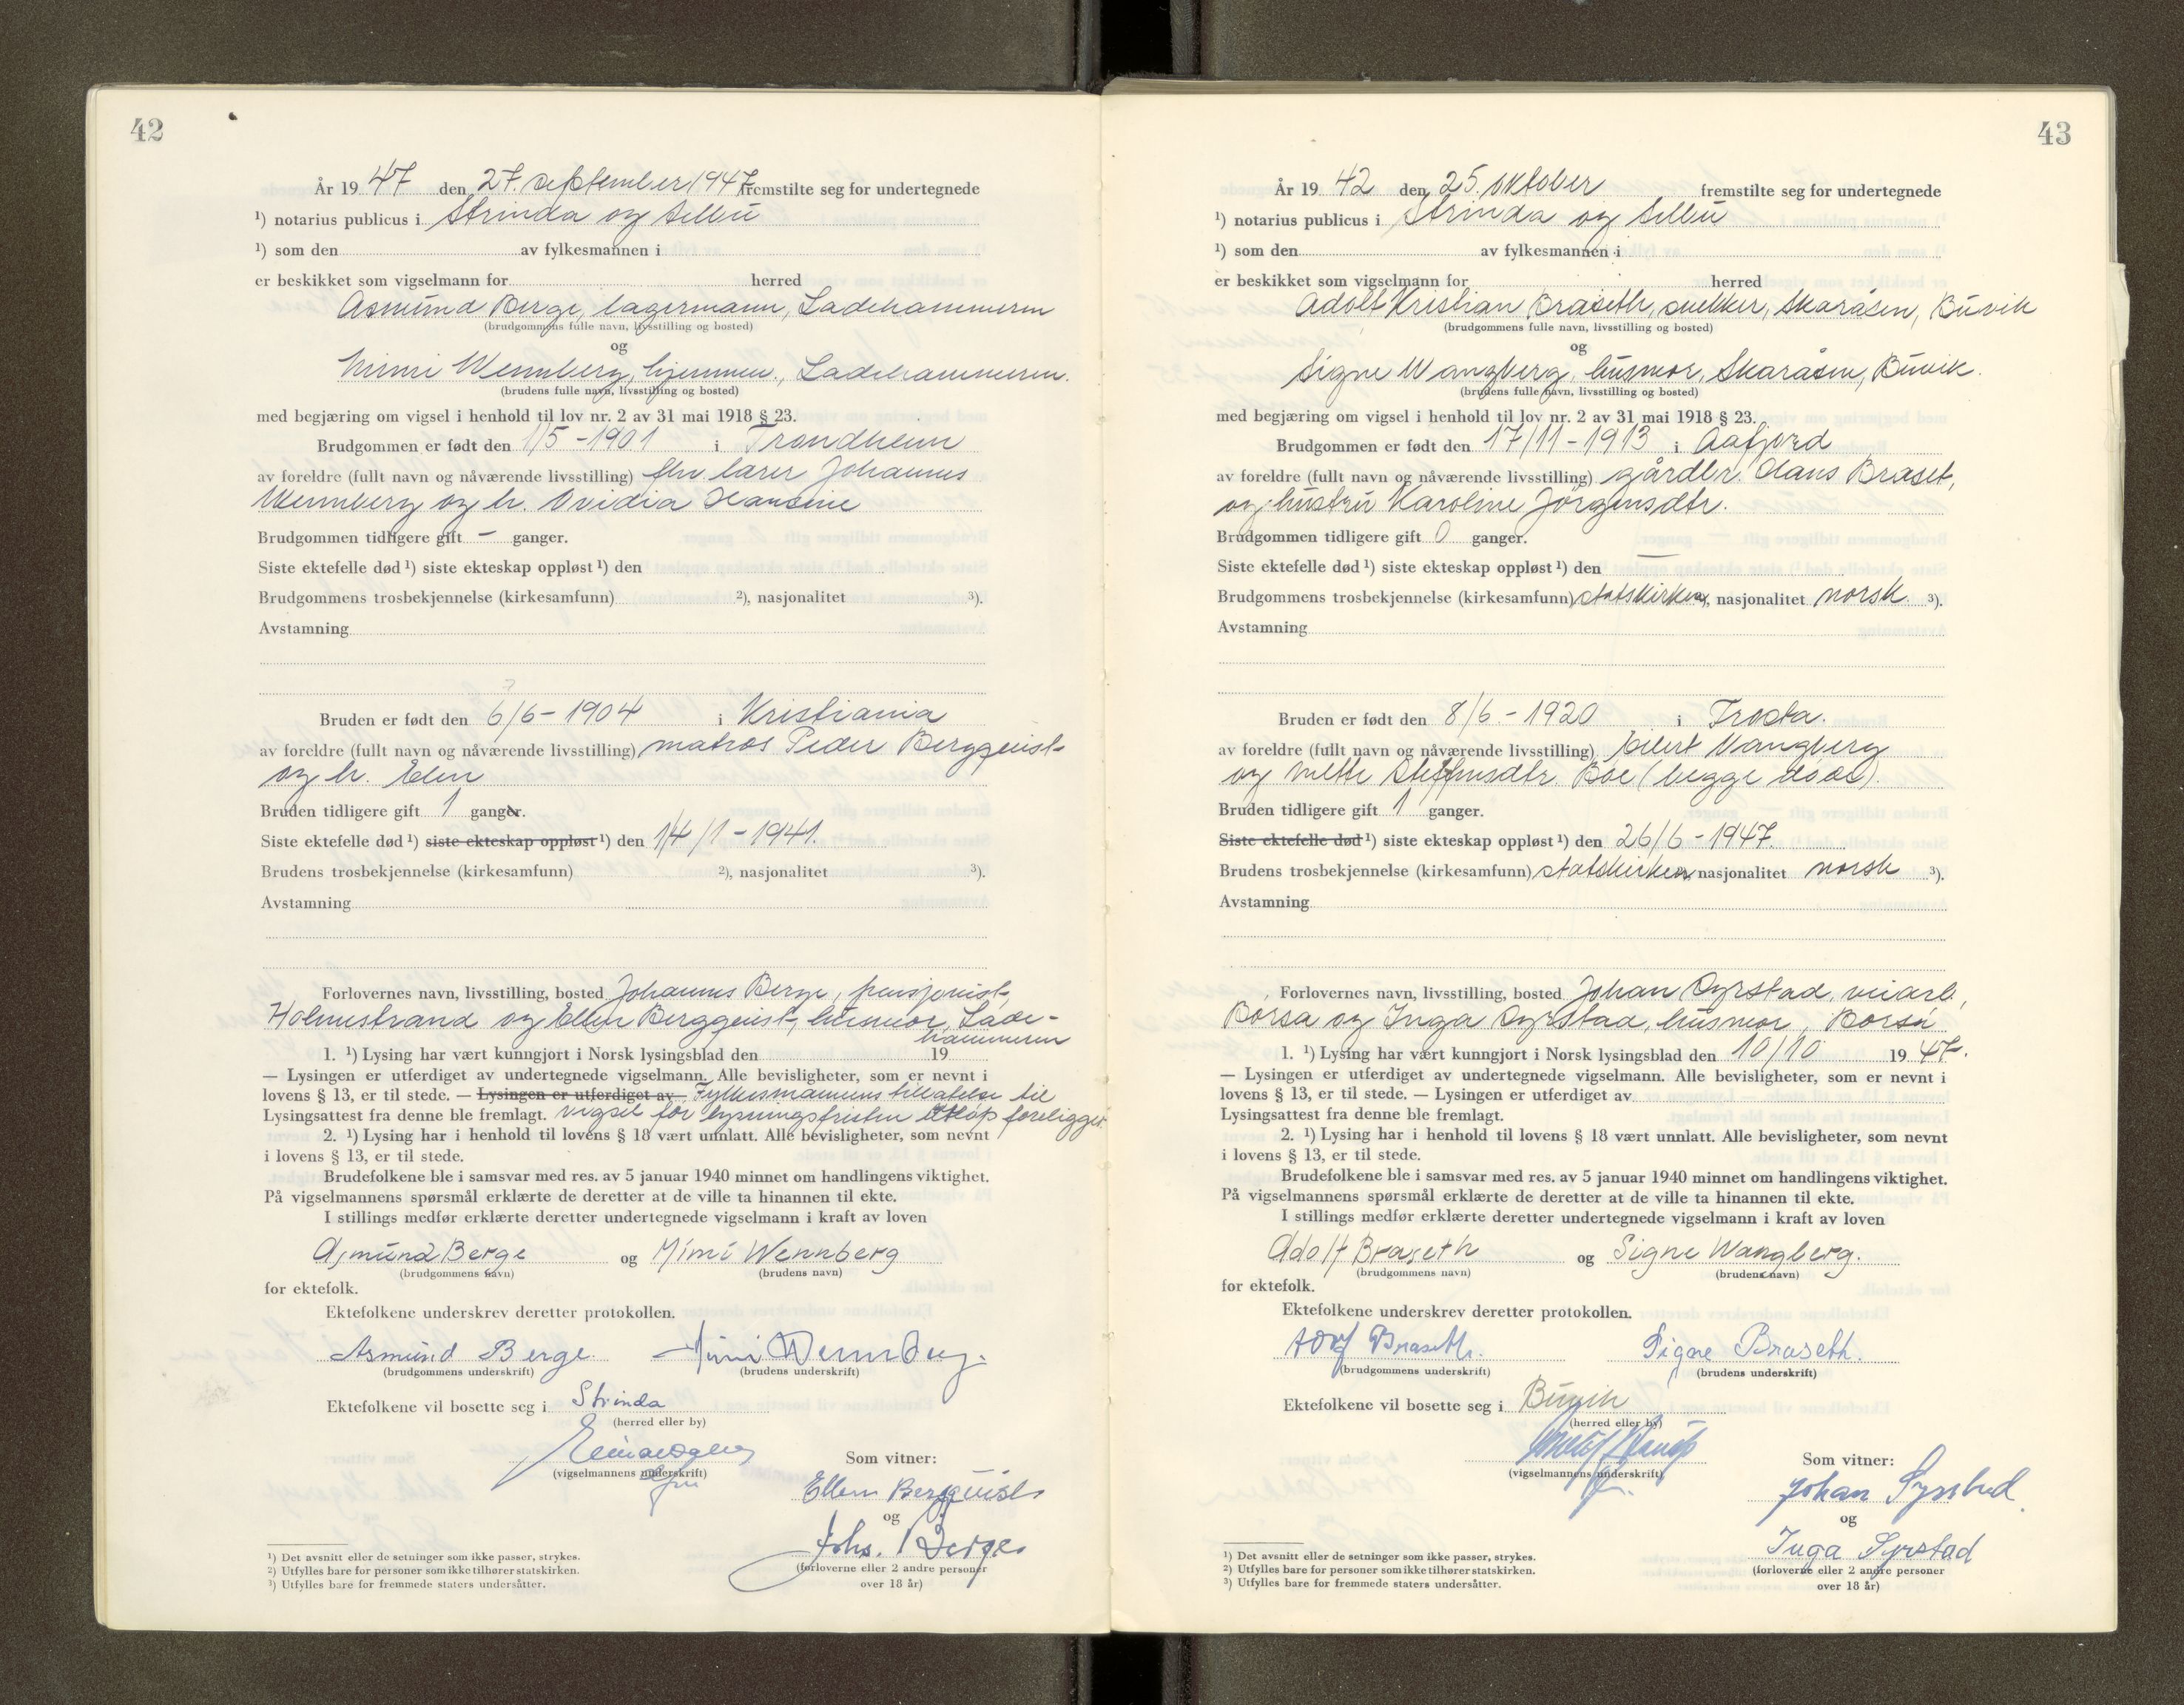 42
År 19 47 den 27. september 1947 fremstilte seg for undertegnede
¹) notarius publicus i Strinda og Selbu
¹) som den av fylkesmannen i
er beskikket som vigselmann for herred
Asmund Berge, lagermann, Ladehammeren
(brudgommens fulle navn, livsstilling og bosted)
og
Mimi Wennberg, hjemmev., Ladehammeren.
(brudens fulle navn, livsstilling og bosted)
med begjæring om vigsel i henhold til lov nr. 2 av 31 mai 1918 § 23.
Brudgommen er født den 1/5 - 1901 i Trondheim
av foreldre (fullt navn og nåværende livsstilling) fhv. lærer Johannes
Wennberg og h. Ovidia Hansine
Brudgommen tidligere gift - ganger.
Siste ektefelle død ¹) siste ekteskap oppløst ¹) den
Brudgommens trosbekjennelse (kirkesamfunn) ²), nasjonalitet ³).
Avstamning
Bruden er født den 6/6 - 1904 i Kristiania
av foreldre (fullt navn og nåværende livsstilling) matros Peder Bergquist
og h. Elen
Bruden tidligere gift 1 ganger.
Siste ektefelle død ¹) siste ekteskap oppløst ¹) den 14/1 - 1941.
Brudens trosbekjennelse (kirkesamfunn) ²), nasjonalitet ³).
Avstamning
Forlovernes navn, livsstilling, bosted Johannes Berge, pensjonist,
Holmestrand og Ellen Bergquist, husmor, Lade-
hammeren
1. ¹) Lysing har vært kunngjort i Norsk lysingsblad den 19
— Lysingen er utferdiget av undertegnede vigselmann. Alle bevisligheter, som er nevnt i
lovens § 13, er til stede. — Lysingen er utferdiget av Fylkesmannens tillatelse til
Lysingsattest fra denne ble fremlagt. vigsel før lysningsfristen utløp foreligger.
2. ¹) Lysing har i henhold til lovens § 18 vært unnlatt. Alle bevisligheter, som nevnt
i lovens § 13, er til stede.
Brudefolkene ble i samsvar med res. av 5 januar 1940 minnet om handlingens viktighet.
På vigselmannens spørsmål erklærte de deretter at de ville ta hinannen til ekte.
I stillings medfør erklærte deretter undertegnede vigselmann i kraft av loven
Asmund Berge og Mimi Wennberg
(brudgommens navn) (brudens navn)
for ektefolk.
Ektefolkene underskrev deretter protokollen.
Asmund Berge. Mimi Wennberg.
(brudgommens underskrift) (brudens underskrift)
Ektefolkene vil bosette seg i Strinda
(herred eller by)
(vigselmannens underskrift)
Som vitner:
Ellen Bergquist
og
Johs. Berge
(forloverne eller 2 andre personer
over 18 år)
¹) Det avsnitt eller de setninger som ikke passer, strykes.
²) Utfylles bare for personer som ikke tilhører statskirken.
³) Utfylles bare for fremmede staters undersåtter.
43
År 19 42 den 25. oktober fremstilte seg for undertegnede
¹) notarius publicus i Strinda og Selbu
¹) som den av fylkesmannen i
er beskikket som vigselmann for herred
Adolf Kristian Braseth, snekker, Skaråsen, Buvik
(brudgommens fulle navn, livsstilling og bosted)
og
Signe Wangberg, husmor, Skaråsen, Buvik.
(brudens fulle navn, livsstilling og bosted)
med begjæring om vigsel i henhold til lov nr. 2 av 31 mai 1918 § 23.
Brudgommen er født den 17/11 - 1913 i Aafjord
av foreldre (fullt navn og nåværende livsstilling) gårdbr. Hans Braset,
og hustru Karoline Jørgensdtr.
Brudgommen tidligere gift 0 ganger.
Siste ektefelle død ¹) siste ekteskap oppløst ¹) den —
Brudgommens trosbekjennelse (kirkesamfunn) statskirken, nasjonalitet norsk ³).
Avstamning
Bruden er født den 8/6 - 1920 i Frosta.
av foreldre (fullt navn og nåværende livsstilling) Eilert Vangberg
og Mette Steffensdtr. Bøe (begge døde).
Bruden tidligere gift 1 ganger.
Siste ektefelle død ¹) siste ekteskap oppløst ¹) den 26/6 - 1947.
Brudens trosbekjennelse (kirkesamfunn) statskirken nasjonalitet norsk ³).
Avstamning
Forlovernes navn, livsstilling, bosted Johan Syrstad, veiarb.,
Børsa og Inga Syrstad, husmor, Børsa
1. ¹) Lysing har vært kunngjort i Norsk lysingsblad den 10/10 19 47.
— Lysingen er utferdiget av undertegnede vigselmann. Alle bevisligheter, som er nevnt i
lovens § 13, er til stede. — Lysingen er utferdiget av
Lysingsattest fra denne ble fremlagt.
2. ¹) Lysing har i henhold til lovens § 18 vært unnlatt. Alle bevisligheter, som nevnt
i lovens § 13, er til stede.
Brudefolkene ble i samsvar med res. av 5 januar 1940 minnet om handlingens viktighet.
På vigselmannens spørsmål erklærte de deretter at de ville ta hinannen til ekte.
I stillings medfør erklærte deretter undertegnede vigselmann i kraft av loven
Adolf Braseth og Signe Wangberg.
(brudgommens navn) (brudens navn)
for ektefolk.
Ektefolkene underskrev deretter protokollen.
Adolf Braseth. Signe Braseth.
(brudgommens underskrift) (brudens underskrift)
Ektefolkene vil bosette seg i Buvik
(herred eller by)
(vigselmannens underskrift)
Som vitner:
Johan Syrstad
og
Inga Syrstad
(forloverne eller 2 andre personer
over 18 år)
¹) Det avsnitt eller de setninger som ikke passer, strykes.
²) Utfylles bare for personer som ikke tilhører statskirken.
³) Utfylles bare for fremmede staters undersåtter.